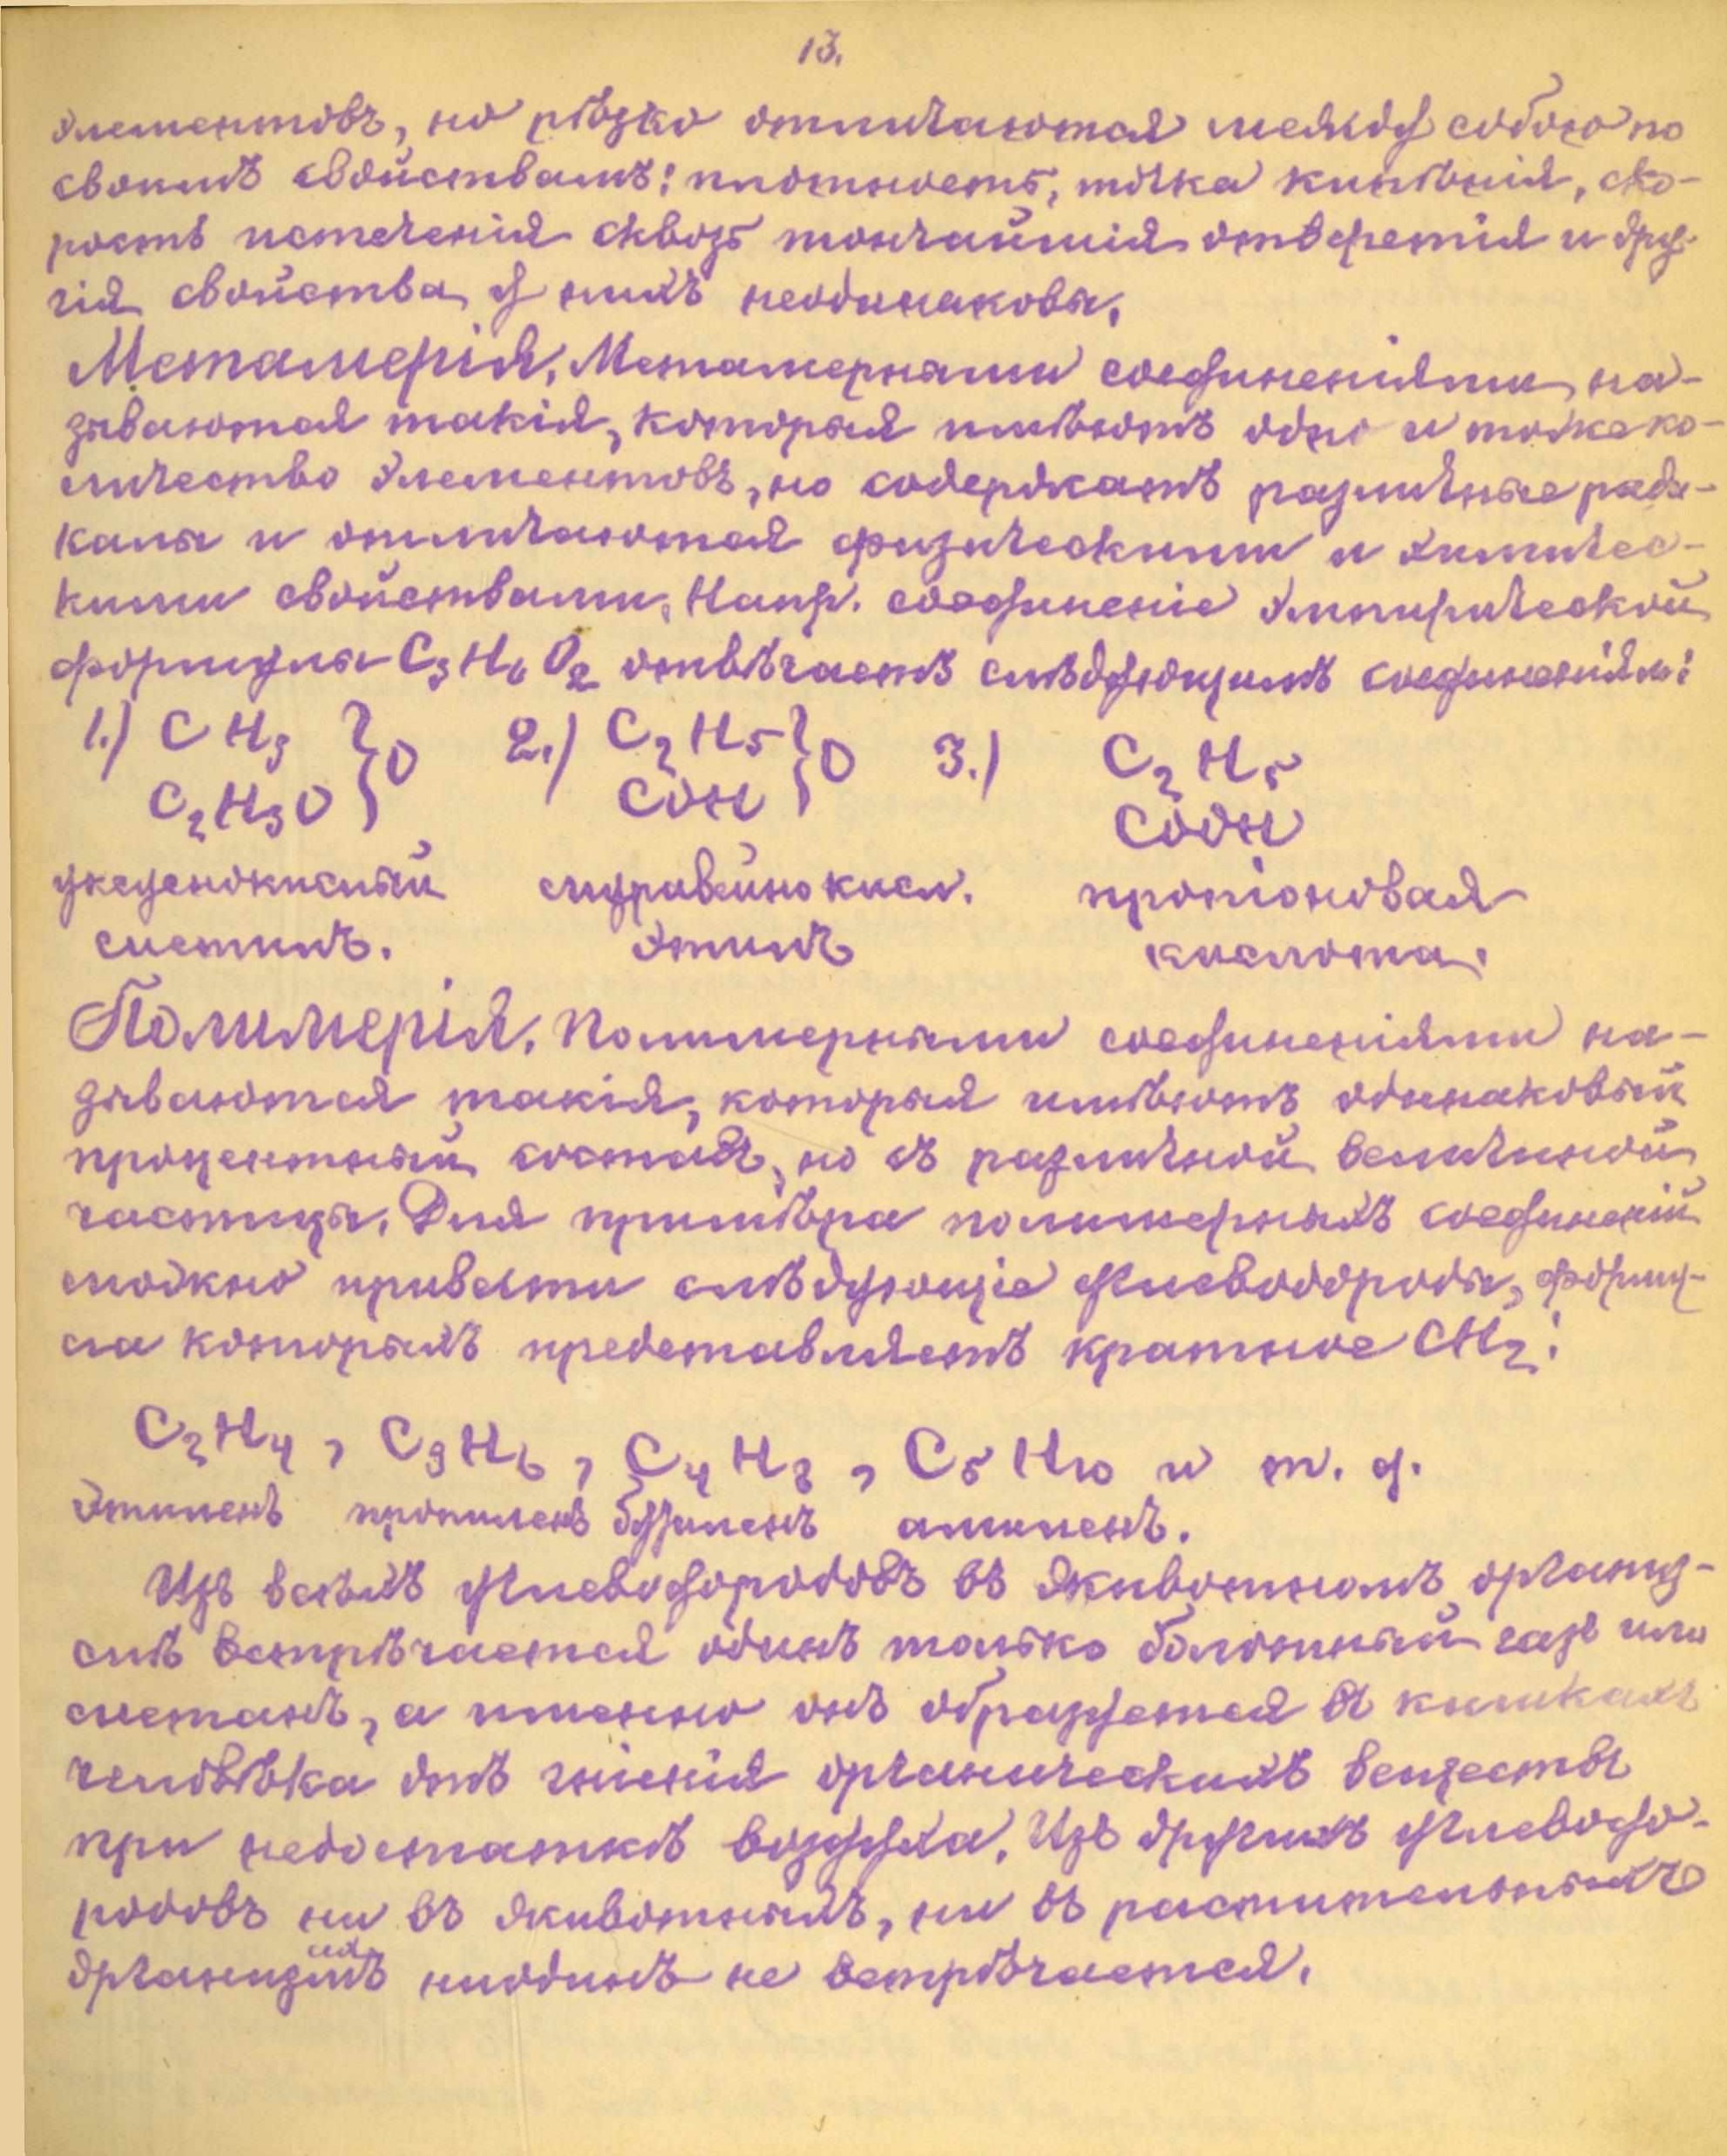 13.
элементовъ, но рѣзко отличаются между собою по
своимъ свойствамъ: плотность, точка кипѣнія, ско-
рость истеченія сквозь тончайшія отверстія и дру-
гія свойства у нихъ неодинаковы.
Метамерія. Метамерными соединеніями на-
зываются такія, которыя имѣютъ одно и тоже ко-
личество элементовъ, но содержатъ различные ради-
калы и отличаются физическими и химичес-
кими свойствами. Напр. соединеніе эмпирической
формулы C₃H₆O₂ отвѣчаетъ слѣдующимъ соединеніям:
1.) CH₃ } O 2.) C₂H₅ } O 3.) C₂H₅
C₂H₃O COH COOH
уксуснокислый муравьинокисл. пропіоновая
метилъ. этилъ кислота.
Полимерія. Полимерными соединеніями на-
зываются такія, которыя имѣютъ одинаковый
процентный составъ, но съ различной величиной
частицы. Для примѣра полимерныхъ соединеній
можно привести слѣдующіе углеводороды, форму-
ла которыхъ представляетъ кратное CH₂:
C₂H₄, C₃H₆, C₄H₈, C₅H₁₀ и т. д.
этиленъ пропиленъ бутиленъ амиленъ.
Изъ всѣхъ углеводородовъ въ животномъ организ-
мѣ встрѣчается одинъ только болотный газъ или
метанъ, а именно онъ образуется въ кишкахъ
человѣка отъ гніенія органическихъ веществъ
при недостаткѣ воздуха. Изъ другихъ углеводо-
родовъ ни въ животныхъ, ни въ растительныхъ
организмахъ ниодинъ не встрѣчается.